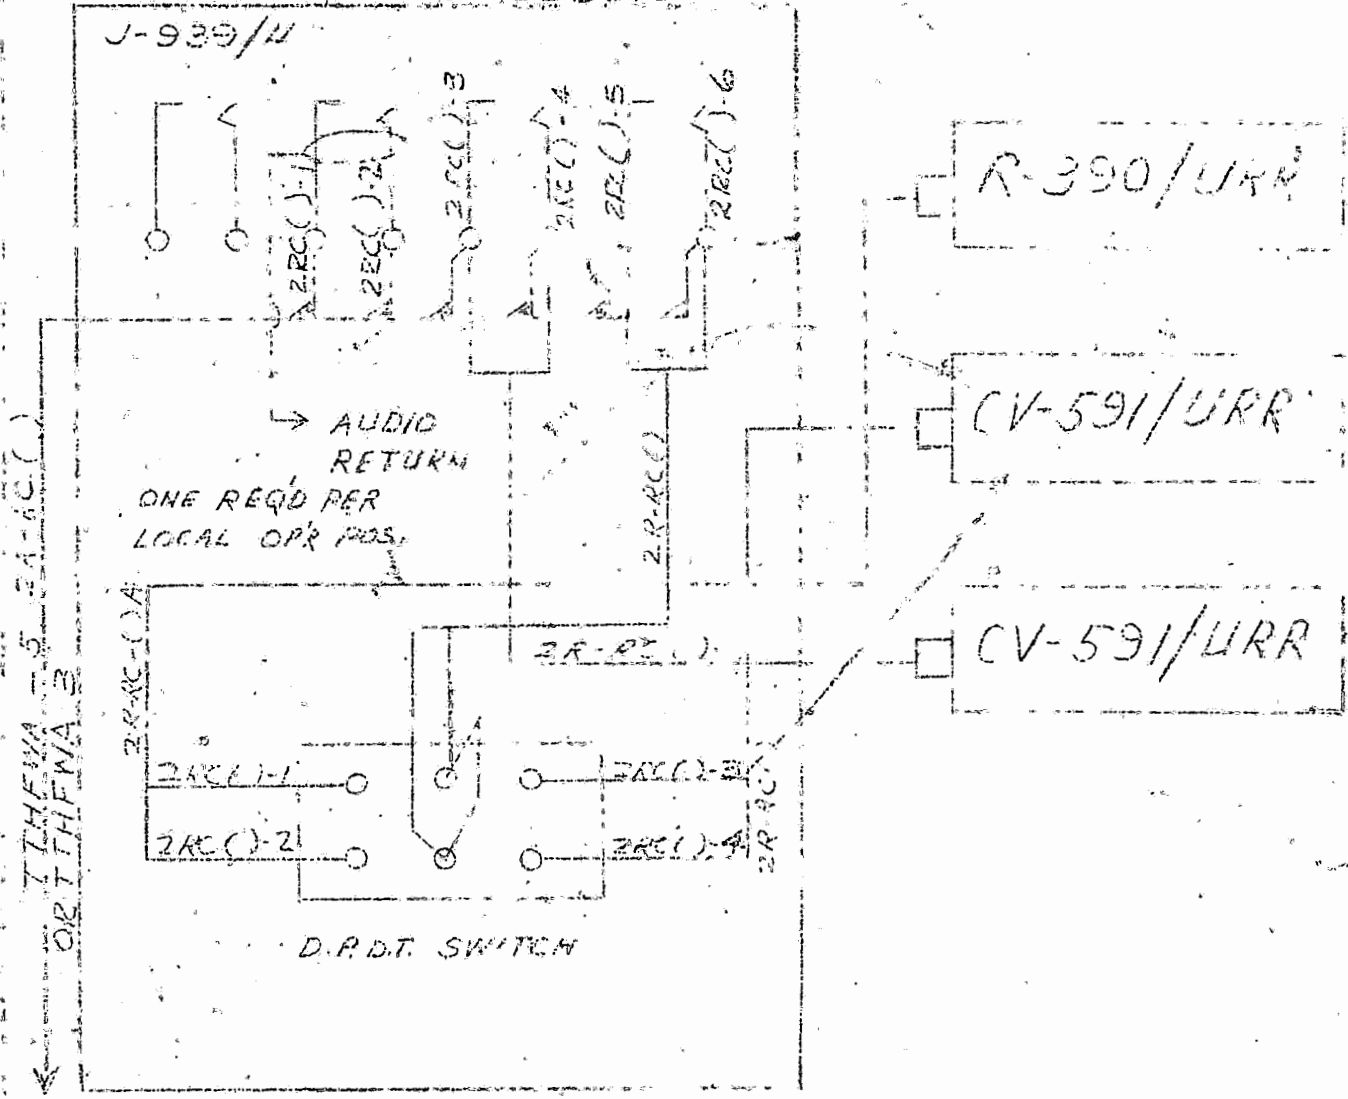 J-939/U
2RC()-1
2RC()-2
2RC()-3
2RC()-4
2RC()-5
2RC()-6
R-390/URR
CV-591/URR
CV-591/URR
AUDIO
RETURN
ONE REQ'D PER
LOCAL OP'R POS.
2R-RC()
2R-RC()
2R-RC-()A
2RC()-1
2RC()-2
2RC()-3
2RC()-4
2R-RC()
D.P.D.T. SWITCH
TTHFWA-5 2A-RC()
OR TTHFWA 3